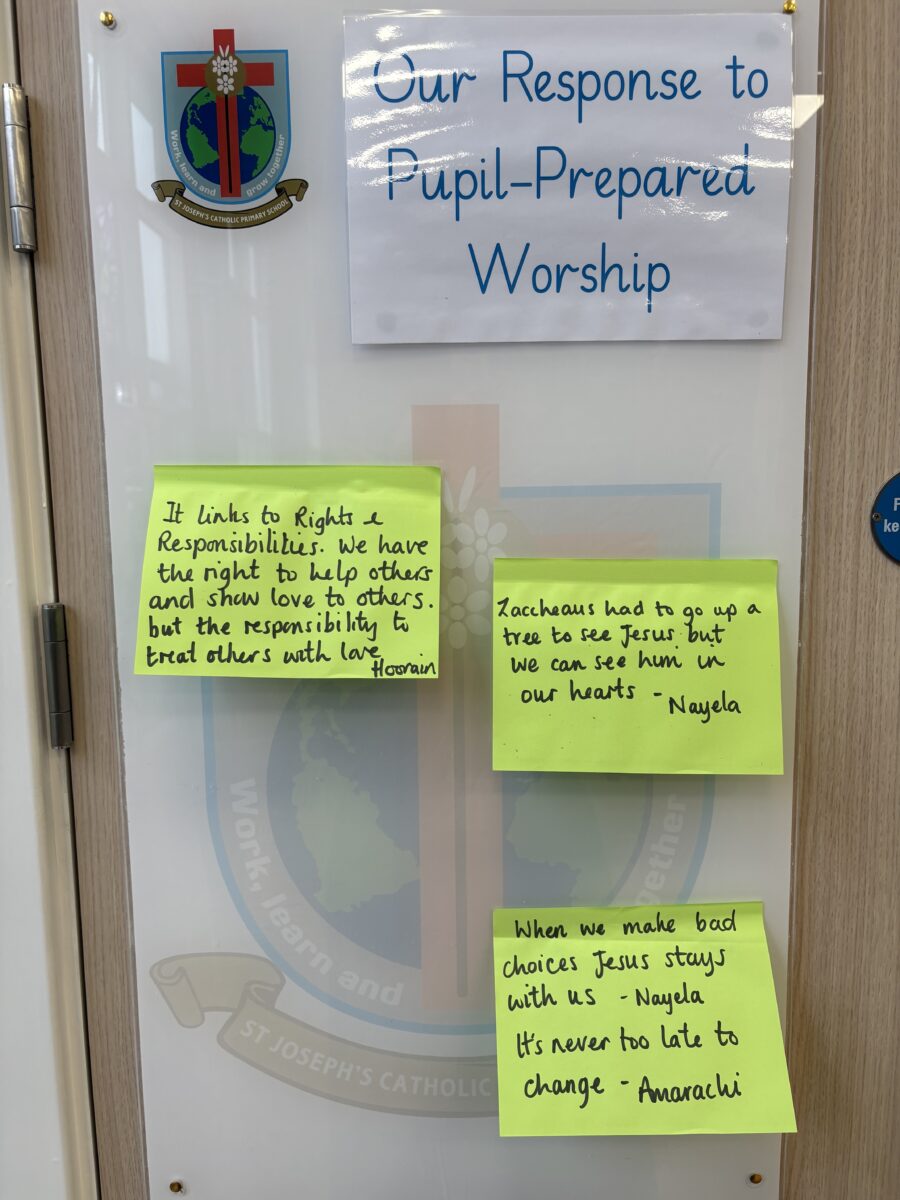 Work, learn and grow together
ST JOSEPH'S CATHOLIC PRIMARY SCHOOL
Our Response to
Pupil-Prepared
Worship
It links to Rights &
Responsibilities. We have
the right to help others
and show love to others.
but the responsibility to
treat others with love
Hoorain
Zaccheaus had to go up a
tree to see Jesus but
we can see him in
our hearts - Nayela
When we make bad
choices Jesus stays
with us - Nayela
It's never too late to
change - Amarachi
Work, learn and
together
ST JOSEPH'S CATHOLIC